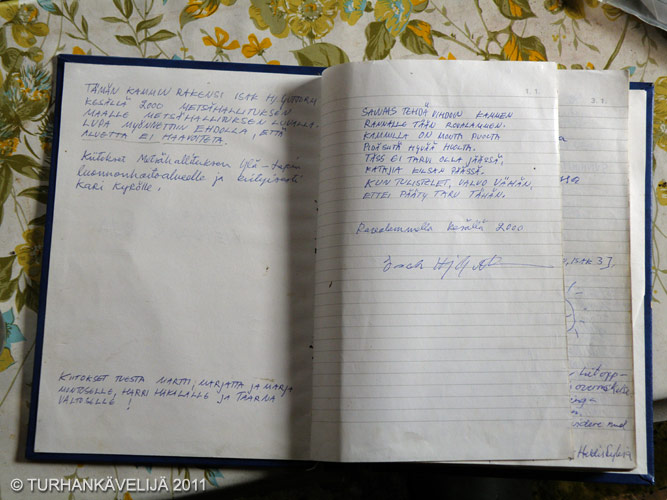 TÄMÄN KAMMIN RAKENSI ISAK
KESÄLLÄ 2000 METSÄHALLITUKSEN
MAALLE METSÄHALLITUKSEN LUVALLA.
LUPA MYÖNNETTIIN EHDOLLA, ETTÄ
ALUETTA EI TAHVITETA.
Kiitokset Metsähallituksen Ylä-Lapin
luonnonhoitoalueelle ja erityisesti
Kari Kyrölle.
KIITOKSET TUESTA MARTTI, MARJATTA JA MARJA
HARRI HAKALALLE JA TAARNA
VALTOSELLE !
1.1.
SAUNAS TEHDÄ VIHDOIN KAMMEN
RANNALLE TÄÄN ROVALAMMEN.
KAMMILLA ON MONTA PUUTA
PIDÄ SIITÄ HYVÄÄ HUOLTA.
TÄSS' EI TARVII OLLA JÄÄSSÄ,
MATAJIA KILSAN PÄÄSSÄ.
KUN TULISTELET, VALVO VÄHÄN,
ETTEI PÄÄTY TARU TÄHÄN.
kesällä 2000
3.1.
© TURHANKÄVELIJÄ 2011